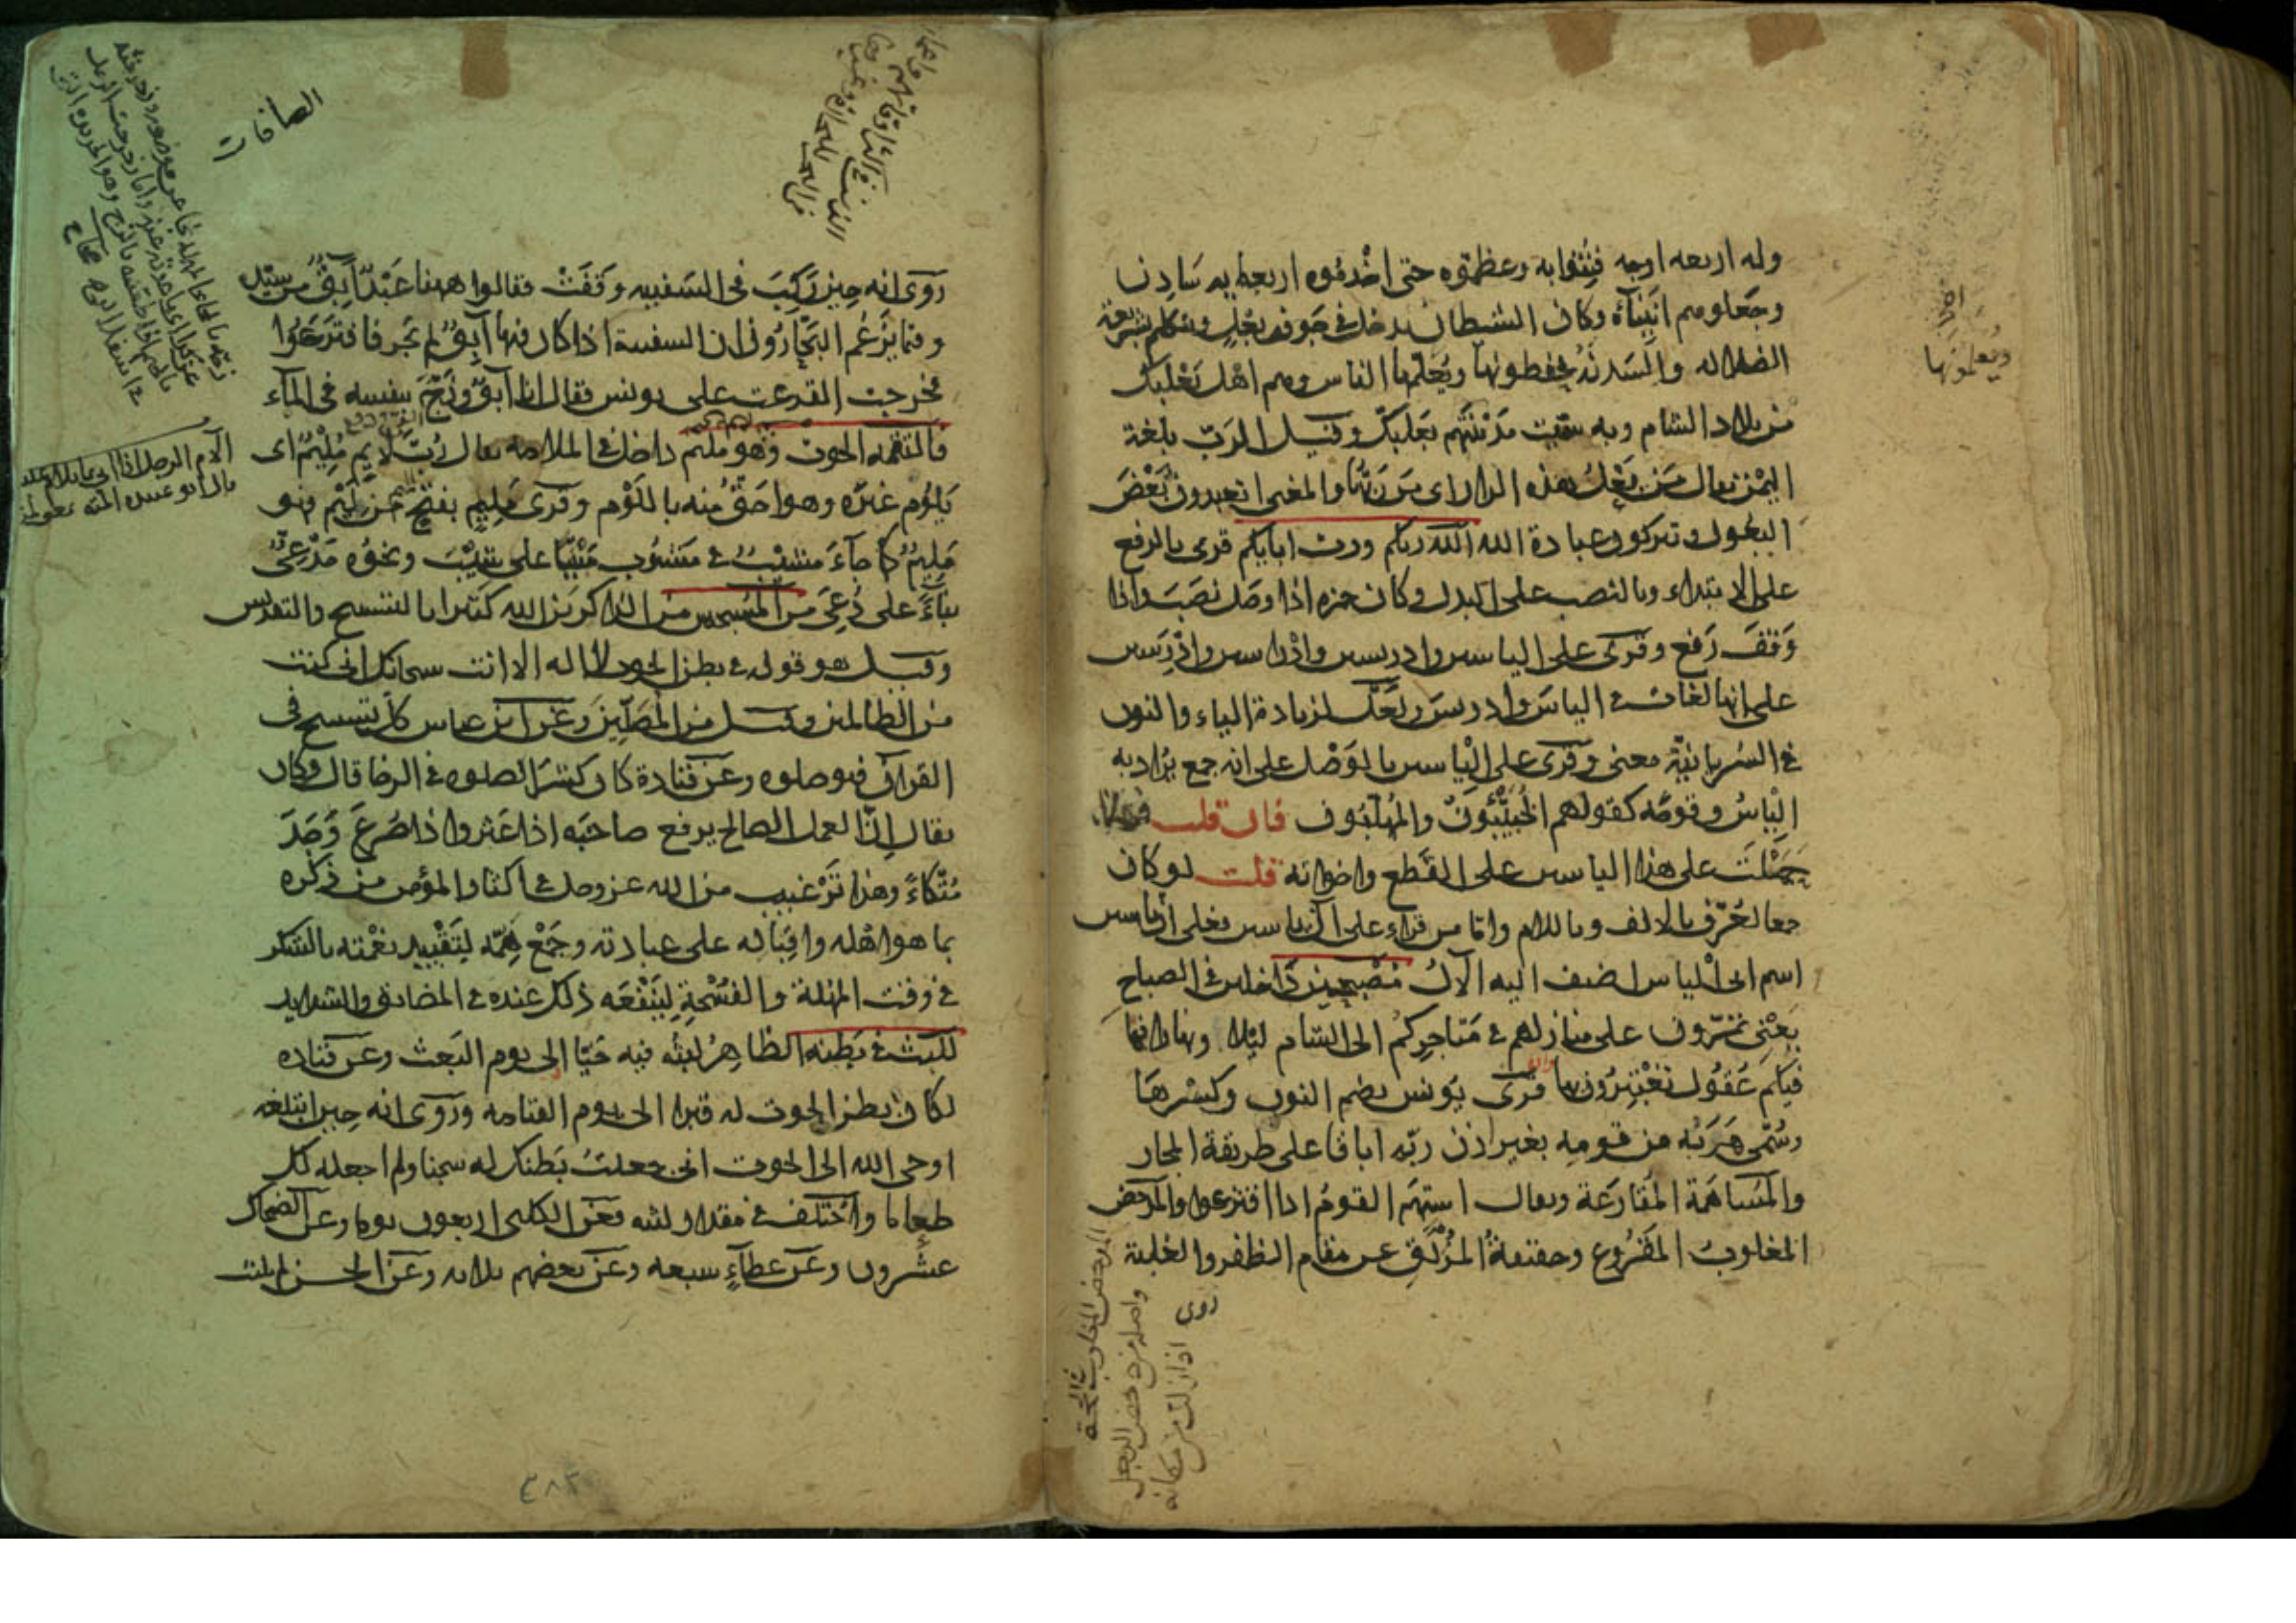 وله اربعه اوجه فتنوا به وعظموه حتى اخدموه اربعمايه سادن
وجعلوهم انبيآء وكان الشيطان يدخل في جوف بعل ويتكلم بشريعة
الضلاله والسدنة يحفظونها ويعلّمها الناس وهم اهل بعلبك
من بلاد الشام وبه سميت مدينتهم بعلبك وقيل الربّ بلغة
اليمن يقال من بعل هذه الدار اى من ربّها والمعنى اتعبدون بعض
البعول وتتركون عبادة الله الله ربكم ورب ابايكم قرى بالرفع
على الابتداء وبالنصب على البدل وكان حمزه اذا وصل نصب واذا
وقف رفع وقرى على الياسين وادريسين وادراسين وادرسين
على انها لغات في الياس وادريس ولعلّ لزيادة الياء والنون
في السريانيّة معنى وقرى على الياسين بالوصل على انه جمع يراد به
الياس وقومه كقولهم الخبيبون والمهلّبون فان قلت فهلا
حملت على هذا الياسين على القطع واخواته قلت لو كان
جمعا لعرّف بالالف وباللام واما من قراء على آل ياسين فعلى ان ياسين
اسم ابى الياس اضيف اليه الآل مصبحين داخلين في الصباح
يعنى تمرّون على منازلهم في متاجركم الى الشام ليلا ونهارا فما
فيكم عقول تعتبرون بها قرى يونس بضم النون وكسرها
وسمّى هربه من قومه بغير اذن ربّه اباقا على طريقة المجاز
والمساهمة المقارعة ويقال استهم القوم اذا اقترعوا والمدحض
المغلوب المقروع وحقيقة المزلق عن مقام الظفر والغلبة
روى
ويعلمونها
المدحض المغلوب في الحجة
واصله من دحض الرجل
اذا زل من مكانه
الصافات
روى انه حين ركب في السفينه وقفت فقالوا ههنا عبد آبق من سيّده
وفيما يزعم البحارون ان السفينة اذا كان فيها آبق لم تجر فاقترعوا
فخرجت القرعة على يونس فقال انا آبق وزجّ بنفسه في الماء
فالتقمه الحوت وهو مليم داخل في الملامه يقال ربّ لايم مليم اى
يلوم غيره وهو احق منه باللوم وقرى مليم بفتح الميم من ليم فهو
مليم كما جآء مشيب في مشوب مبنيّا على شيب ونحوه مدعىّ
بناءً على دعى من المسبحين من الذاكرين الله كثيرا بالتسبيح والتقديس
وقيل هو قوله في بطن الحوت لا اله الا انت سبحانك انى كنت
من الظالمين وقيل من المصلّين وعن ابن عباس كل تسبيح في
القرآن فهو صلوه وعن قتادة كان كثير الصلوه في الرخا قال وكان
يقال انّ العمل الصالح يرفع صاحبه اذا عثر واذا صرع وجد
متّكاءً وهذا ترغيب من الله عز وجل في اكثار المؤمن من ذكره
بما هو اهله واقباله على عبادته وجمع همّه لتقييد نعمته بالشكر
في وقت المهلة والفسحة لينفعه ذلك عنده في المضايق والشدايد
للبث في بطنه الظاهر لبثه فيه حيّا الى يوم البعث وعن قتاده
لكان بطن الحوت له قبرا الى يوم القيامه وروى انه حين ابتلعه
اوحى الله الى الحوت انى جعلت بطنك له سجنا ولم اجعله لك
طعاما واختلف في مقدار لبثه فعن الكلبى اربعون يوما وعن الضحاك
عشرون وعن عطآء سبعه وعن بعضهم ثلاثه وعن الحسن لم يلبث
٣٨٢